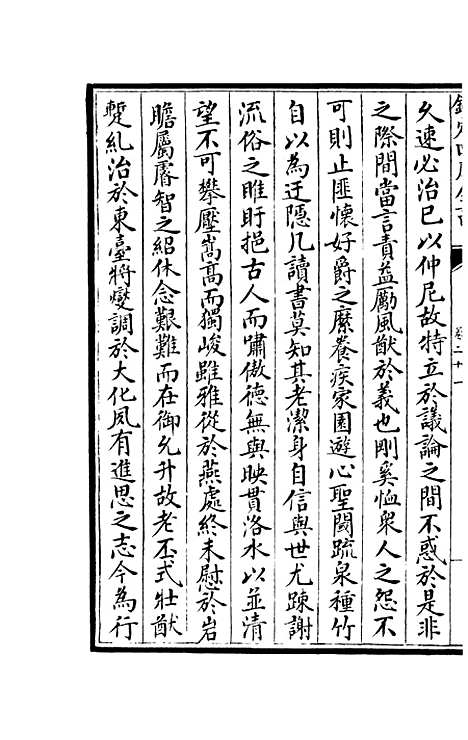 欽定四庫全書
卷二十一
久速必治已以仲尼故特立於議論之間不惑於是非
之際間當言責益勵風猷於義也剛奚恤衆人之怨不
可則止匪懷好爵之縻養疾家園遊心聖閫疏泉種竹
自以為迂隱几讀書莫知其老潔身自信與世尤踈謝
流俗之睢盱挹古人而嘯傲德無與映貫洛水以並清
望不可攀壓嵩高而獨峻雖雅從於燕處終未慰於岩
瞻屬睿智之紹休念艱難而在御允升故老丕式壯猷
蹔糺治於東臺將燮調於大化夙有進思之志今為行